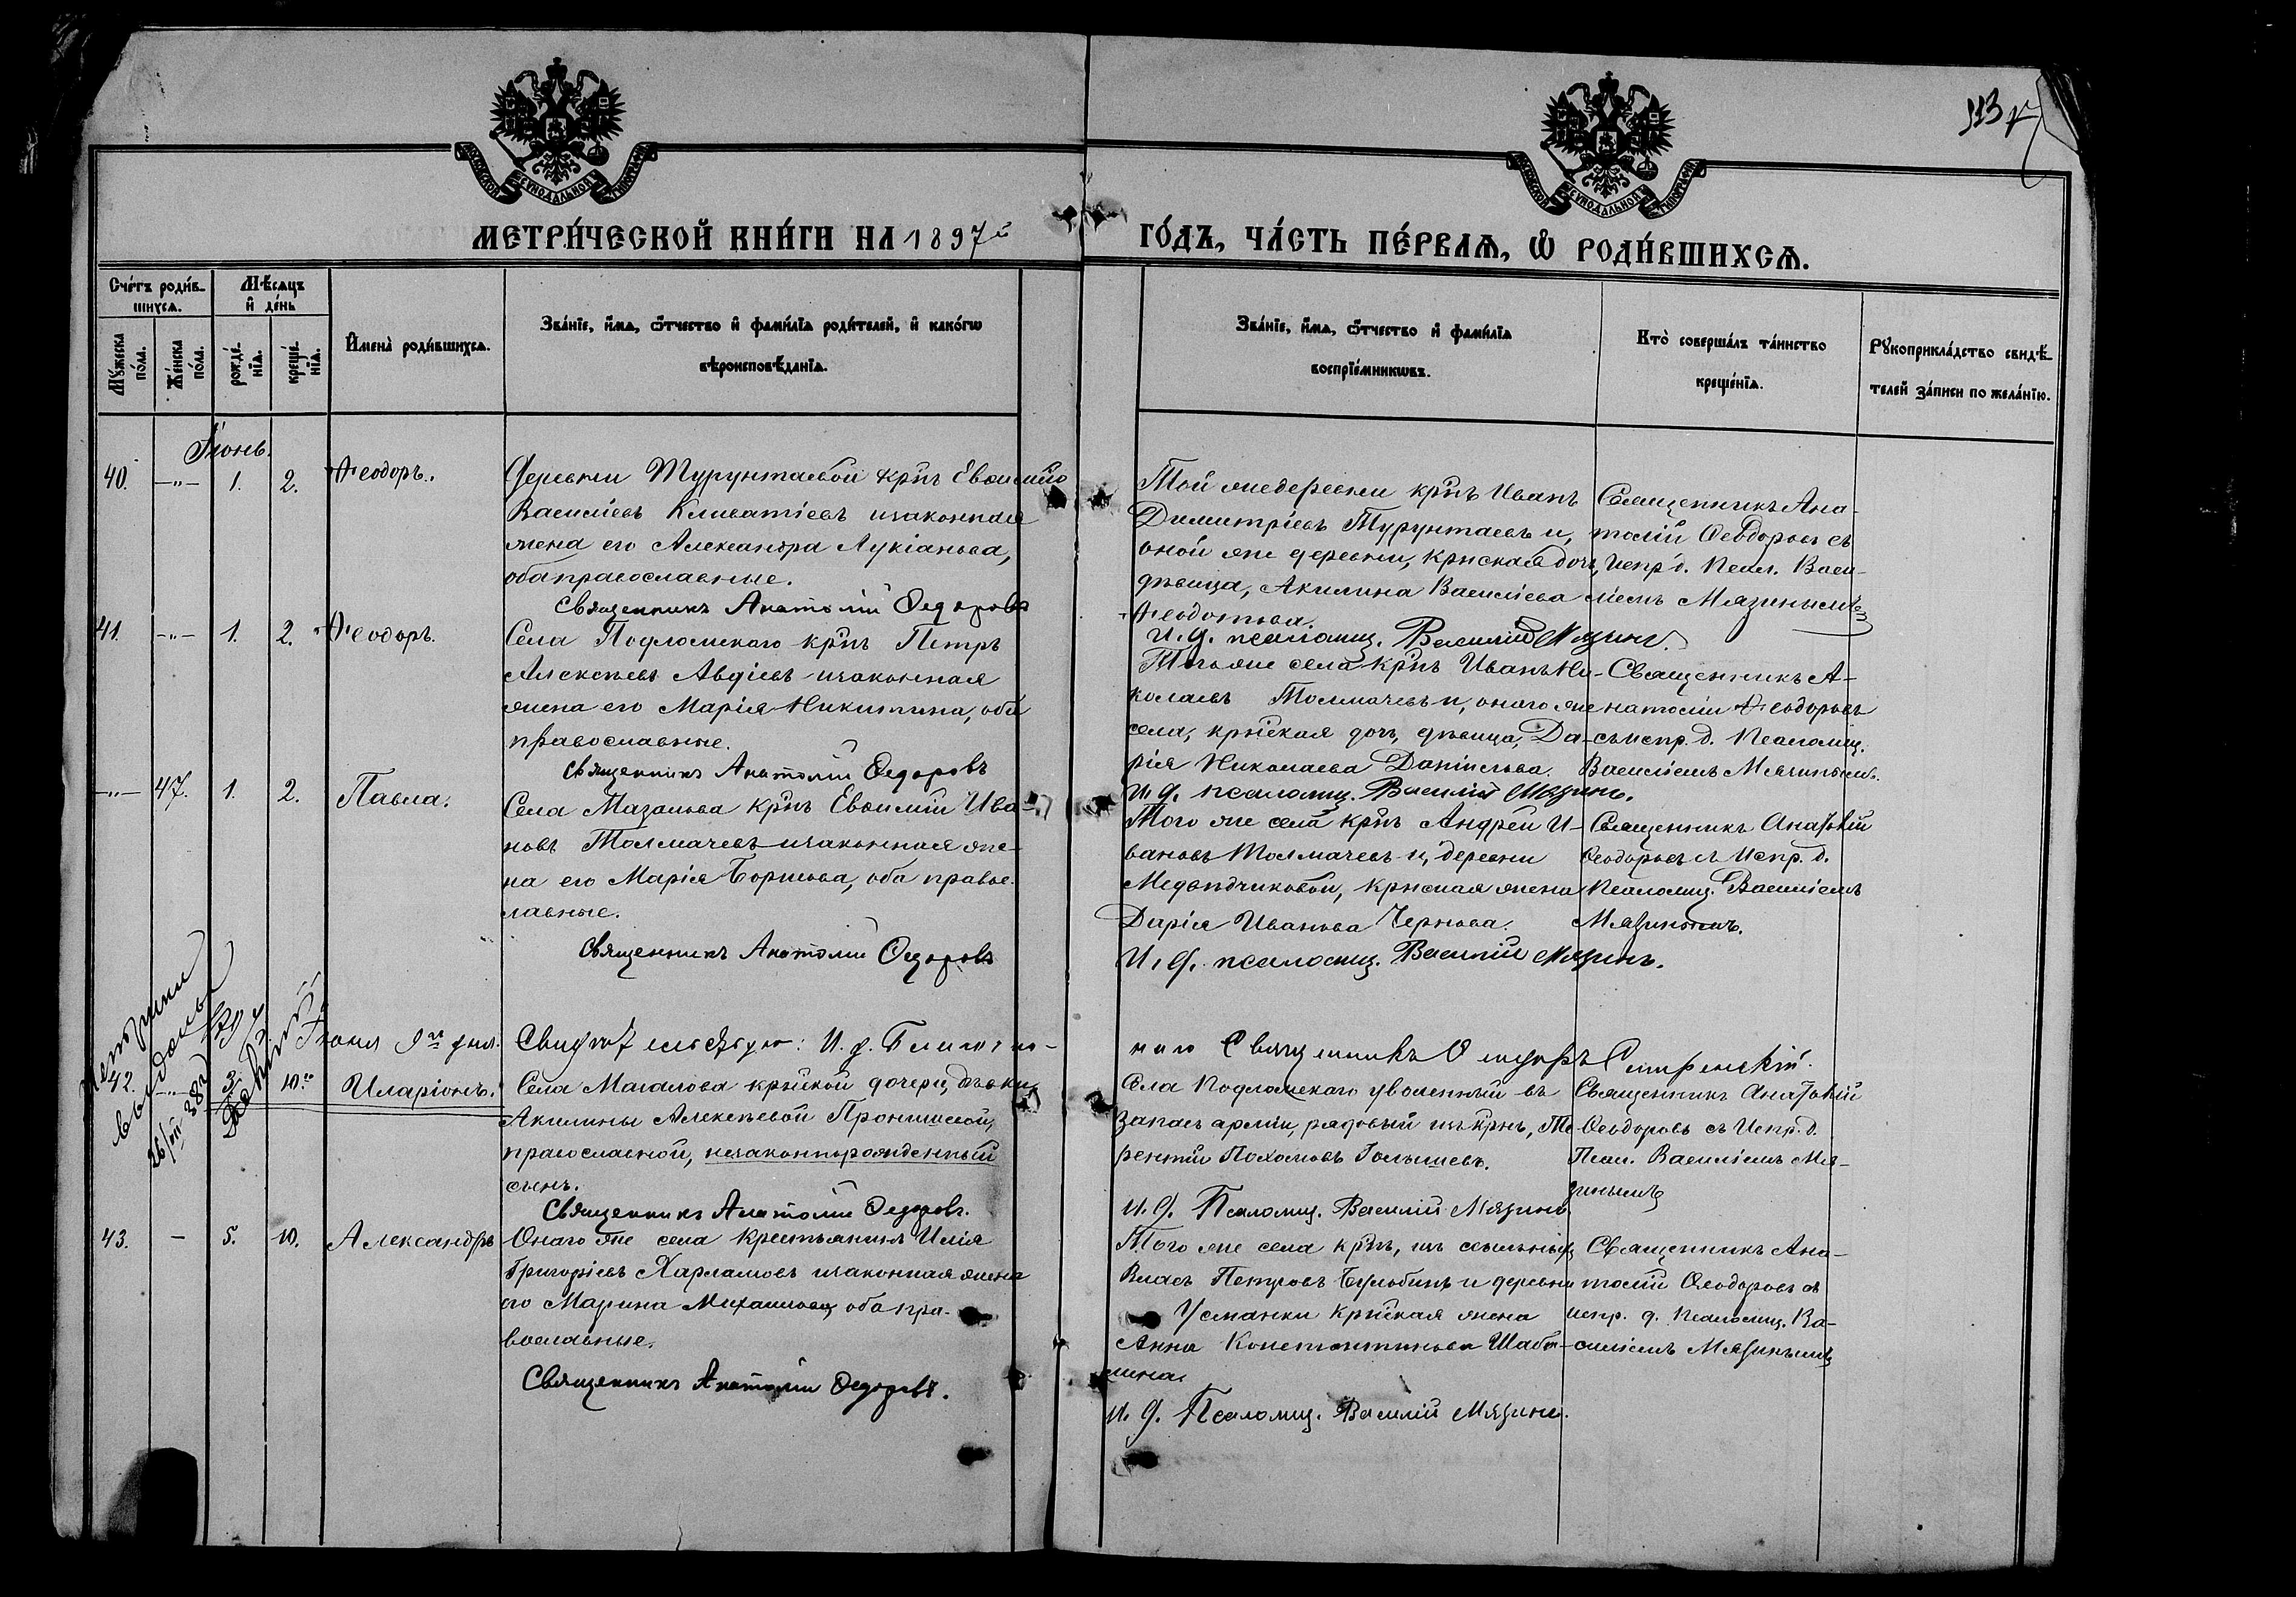 113
МОСКОВСКОЙ СУНОДАЛЬНОЙ ТИПОГРАФІИ
МОСКОВСКОЙ СУНОДАЛЬНОЙ ТИПОГРАФІИ
МЕТРИ́ЧЕСКОЙ КНИ́ГИ НА 1897й
ГО́ДЪ, ЧА́СТЬ ПЕ́РВАѦ, Ѡ РОДИ́ВШИХСѦ.
Сче́тъ роди́в-
шихсѧ.
Мѣ́сѧцъ
и҆ де́нь
Мꙋ́жеска
по́ла.
Же́нска
по́ла.
рожде́-
нїѧ.
креще́-
нїѧ.
И҆мена̀ роди́вшихсѧ.
Зва́нїе, и҆́мѧ, ѻ҆́тчество и҆ фами́лїѧ роди́телей, и҆ како́гѡ
вѣроисповѣ́данїѧ.
Зва́нїе, и҆́мѧ, ѻ҆́тчество и҆ фами́лїѧ
воспрїе́мникѡвъ.
Кто̀ соверша́лъ та́инство
креще́нїѧ.
Рꙋкоприкла́дство свидѣ́-
телей за́писи по жела́нїю.
Іюнь.
40. —"— 1. 2. Ѳеодоръ.
Деревни Турунтаевой крнъ Евѳимій
Василіевъ Климатіевъ изаконная
жена его Александра Лукіанова,
оба православные.
Священникъ Анатолій Ѳедоровъ
Той же деревни крнъ Иванъ
Димитріевъ Турунтаевъ и,
оной же деревни, крнская дочь,
дѣвица, Акилина Василіева
Ѳеодотова.
И. д. псаломщ. Василій Мязинъ.
Священникъ Ана-
толій Ѳеодоровъ съ
Испр. д. Псал. Васи-
ліемъ Мязинымъ
41. —"— 1. 2. Ѳеодоръ.
Села Подломскаго крнъ Петръ
Алексѣевъ Авдіевъ изаконная
жена его Марія Никитина, оба
православные.
Священникъ Анатолій Ѳедоровъ
Того же села крнъ Иванъ Ни-
колаевъ Толмачевъ и, оного же
села, крнская дочь, дѣвица, Да-
рія Николаева Данилова.
И. д. псаломщ. Василій Мязинъ.
Священникъ А-
натолій Ѳеодоровъ
съ испр. д. Псаломщ.
Василіемъ Мязинымъ.
—"— 47. 1. 2. Павла.
Села Мазалова крнъ Евѳимій Ива-
новъ Толмачевъ изаконная же-
на его Марія Борисова, оба правос-
лавные.
Священникъ Анатолій Ѳедоровъ
Того же села крнъ Андрей И-
вановъ Толмачевъ и, деревни
Медвѣдчиковой, крнская жена
Дарія Иванова Чернова.
И. д. псаломщ. Василій Мязинъ.
Священникъ Анатолій
Ѳеодоровъ съ Испр. д.
Псаломщ. Василіемъ
Мязинымъ.
Іюня 9го дня. Свидѣтельствую: И. д. Благочин-
наго Священникъ
Метрики
выданы
42. —"— 3. 10го Иларіонъ.
Села Магалова крнской дочери, дѣвки
Акилины Алексѣевой
православной, незаконнорожденный
сынъ.
Священникъ Анатолій Ѳедоровъ.
Села Подломскаго уволенный въ
запасъ арміи, рядовый изъ крнъ, Те-
рентій Пахомовъ Голышевъ.
И. д. Псаломщ. Василій Мязинъ
Священникъ Анатолій
Ѳеодоровъ съ Испр. д.
Псал. Василіемъ Мя-
зинымъ
43. — 5. 10. Александръ
Онаго же села Крестьянинъ Илія
Григоріевъ Харламовъ изаконная жена
его Марина Михаилова, оба пра-
вославные.
Священникъ Анатолій Ѳедоровъ.
Того же села крнъ, изъ ссыльныхъ
Власъ Петровъ Булобинъ и деревни
Усманки крнская жена
Анна Константинова Шаба-
лина.
И. д. Псаломщ. Василій Мязинъ.
Священникъ Ана-
толій Ѳеодоровъ съ
испр. д. Псаломщ. Ва-
силіемъ Мязинымъ